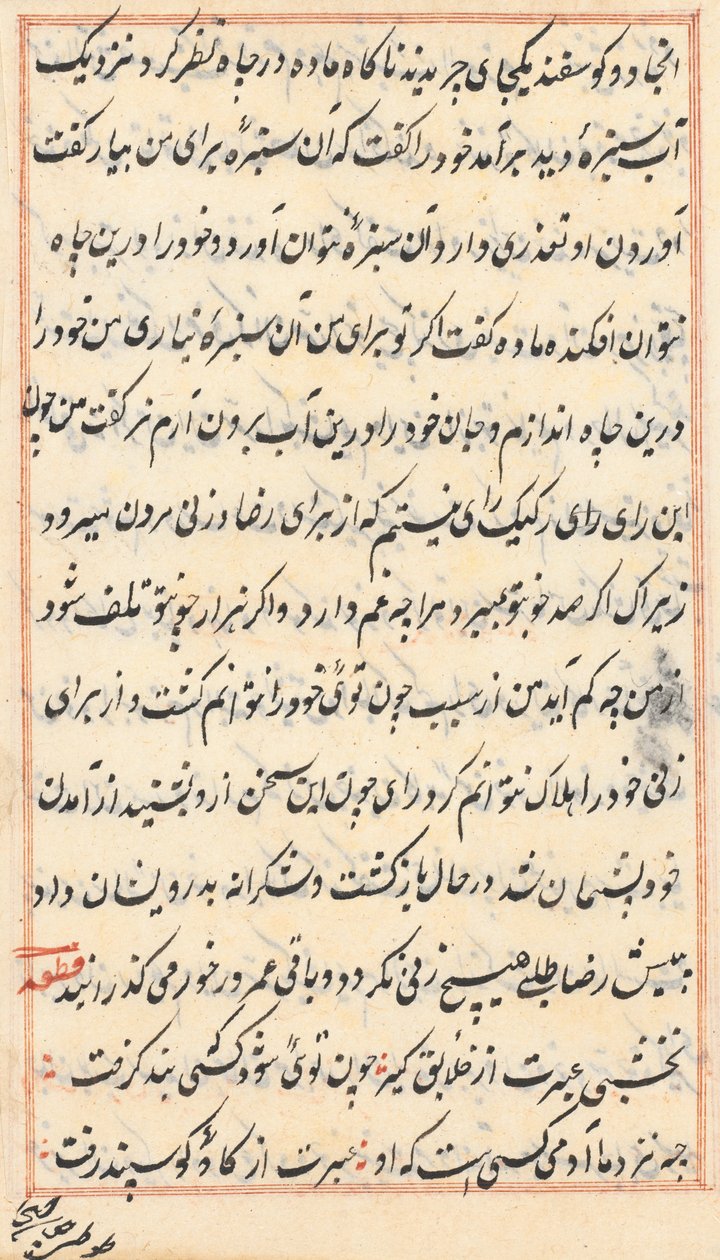 انجا دو کوسفند یکجای چریدند ناکاه ماده در چاه نظر کرد نزدیک
آب سبزهٔ دید برآمد خود را کفت که آن سبزهٔ برای من بیار کفت
آوردن او تعذری دارد و آن سبزهٔ نتوان آورد و خود را درین چاه
نتوان افکند ماده کفت اکر تو برای من آن سبزهٔ نیاری من خود را
درین چاه اندازم و جان خود را درین آب برون آرم نر کفت من چون
این رای رای رکیک رای نیستم که از برای رضاء زنی مردن میرود
زیراک اکر صد چو تو بمیرد مرا چه غم دارد و اکر هزار چو تو تلف شود
از من چه کم آید من از سبب چون توئی خود را نتوانم کشت و از برای
زنی خود را هلاک نتوانم کرد رای چون این سخن ازو بشنید از آمدن
خود پشیمان شد در حال بازکشت و شکرانه بدرویشان داد
پیش رضا طلبی هیچ زنی نکرد و باقی عمر در خورمی کذرانید قطعه
نخشبی عبرت از خلایق کیر چون توئی شوخ کسی بند کرفت
چه نزد ما آدمی کسی است که او عبرت از کاؤ کوسپند رفت